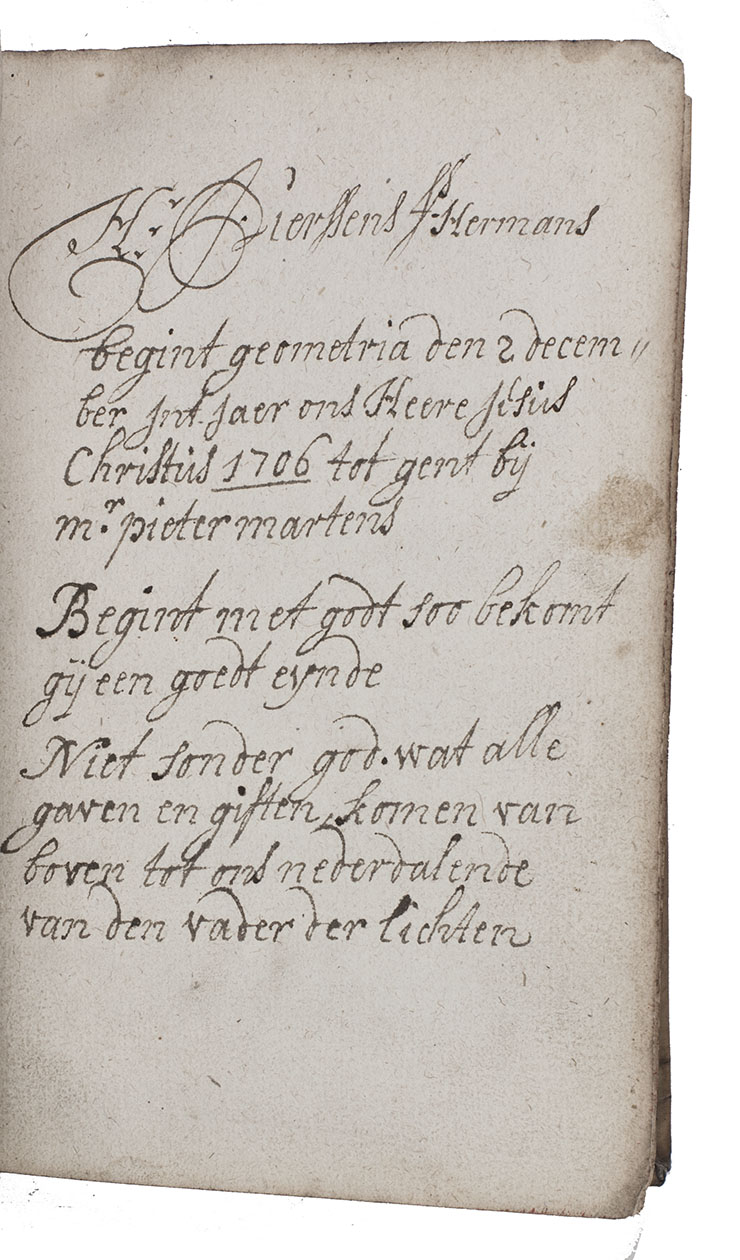 Hr Dierssens fs Hermans
begint geometria den 2 decem„
ber Jnt Jaer ons Heere Jésüs
Christüs 1706 tot gent bij
mr. pieter martens
Begint met godt soo bekomt
gij een goedt eynde
Niet sonder god. wat alle
gaven en giften, komen van
boven tot ons nederdalende
van den vader der lichten